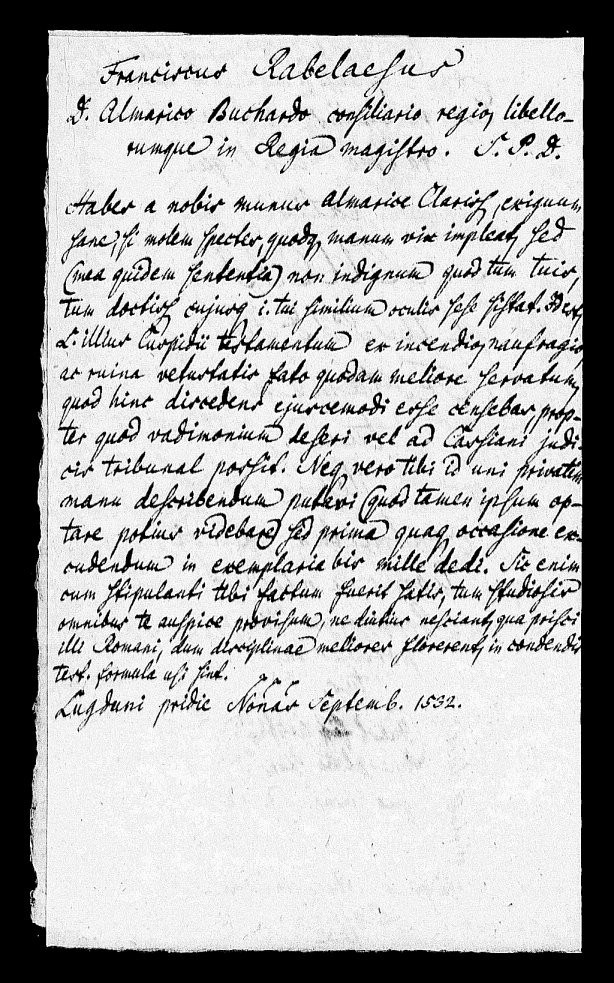 Franciscus Rabelaesus
D. Almarico Buchardo consiliario regio, libello-
rumque in Regia magistro. S. P. D.
Habes a nobis munus Almarice Clariss, exiguum
sane, si molem spectes, quodq manum vix impleat, sed
(mea quidem sententia) non indignum quod tum tuis,
tum doctiss cujusq i. tui similium oculis sese sistat. Id est
L. illius Cuspidii testamentum ex incendio, naufragio,
ac ruina vetustatis fato quodam meliore servatum,
quod hinc discedens ejuscemodi esse censebas, prop-
ter quod vadimonium deseri vel ad Cassiani judi-
cis tribunal possit. Neq vero tibi id uni privatim
manu describendum putavi (quod tamen ipsum op-
tare potius videbare) sed prima quaq occasione ex-
cudendum in exemplaria bis mille dedi. Sic enim
cum stipulanti tibi factum fuerit satis, tum studiosis
omnibus te auspice provisum, ne diutius nesciant, qua prisci
illi Romani, dum disciplinae meliores florerent, in condendis
test. formula usi sint.
Lugduni pridie Nonas Septemb. 1532.